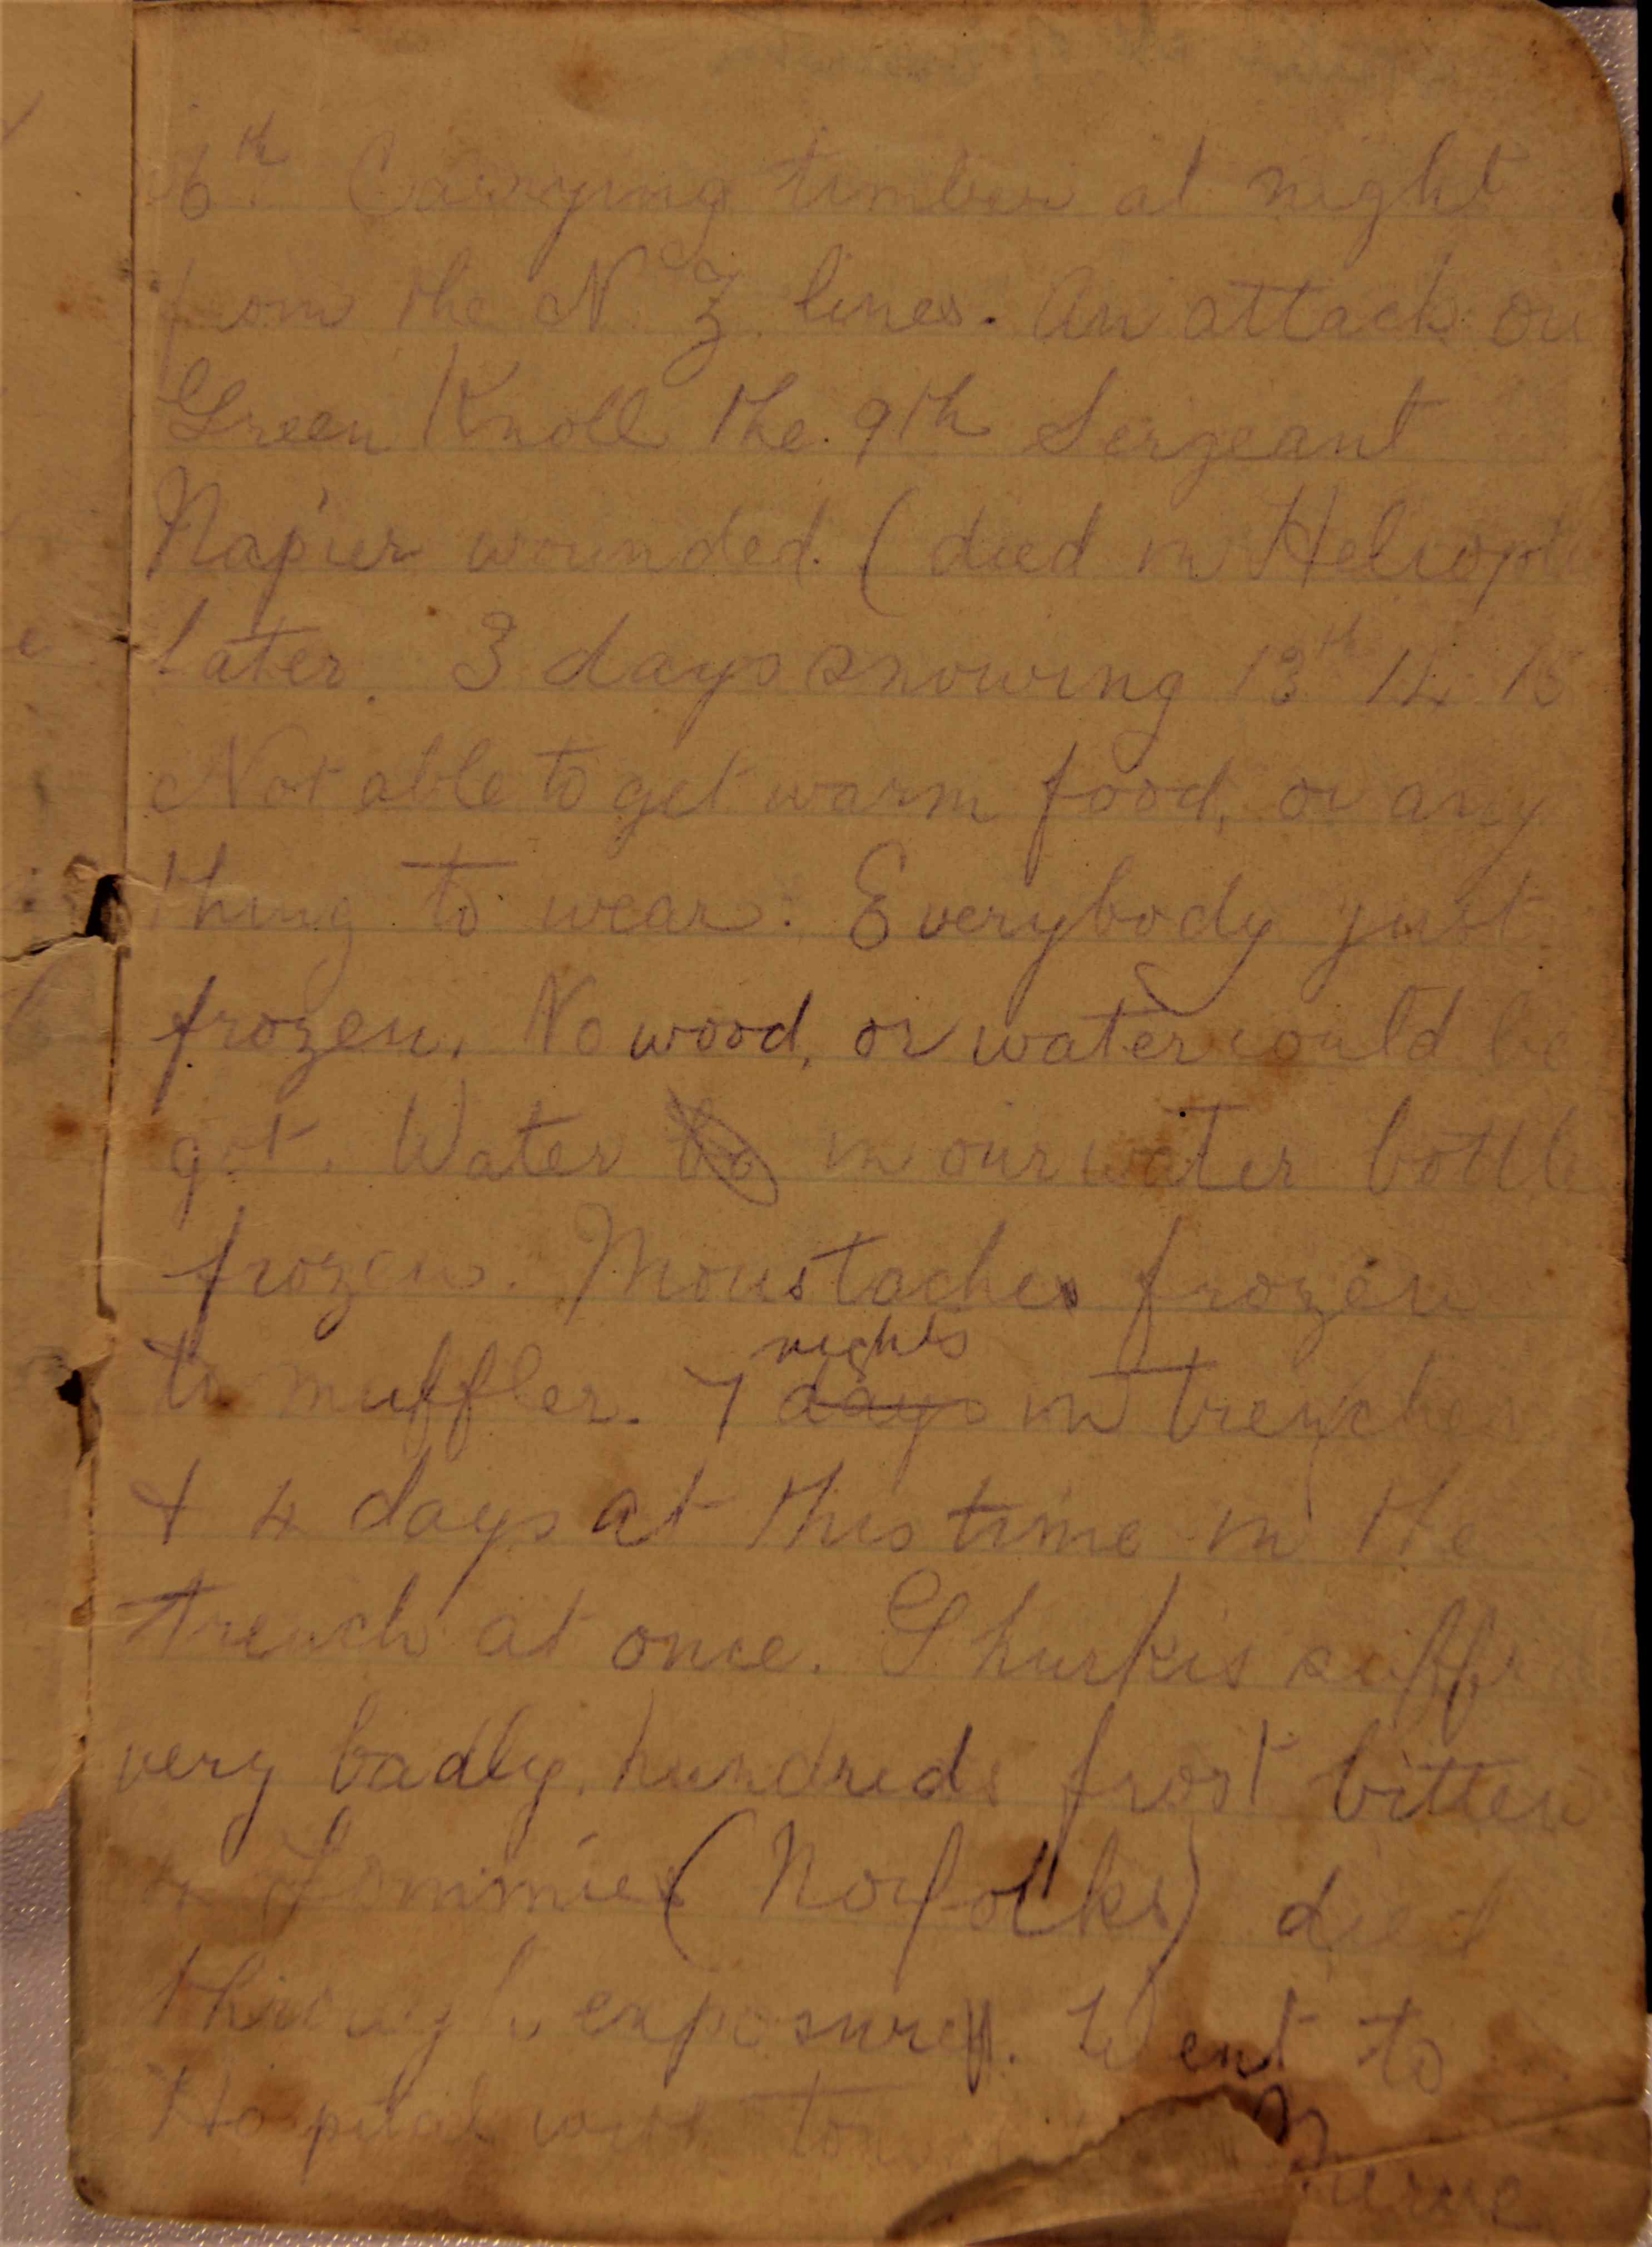 6th Carrying timber at night
from the N Z lines. An attack on
Green Knoll the 9th Sergeant
Napier wounded. (died in Heliopl
later. 3 days snowing 13th 14 15
Not able to get warm food, or any
thing to wear. Everybody just
frozen. No wood, or water could be
got. Water in our water bottle
frozen. Moustaches frozen
to muffler. 7 nights days in trenches
& 4 days at this time in the
trench at once. Ghurkis suffr
very badly, hundreds frost bitten
& Tommies (Norfolks) died
through exposure. Went to
Hospital with
nerve